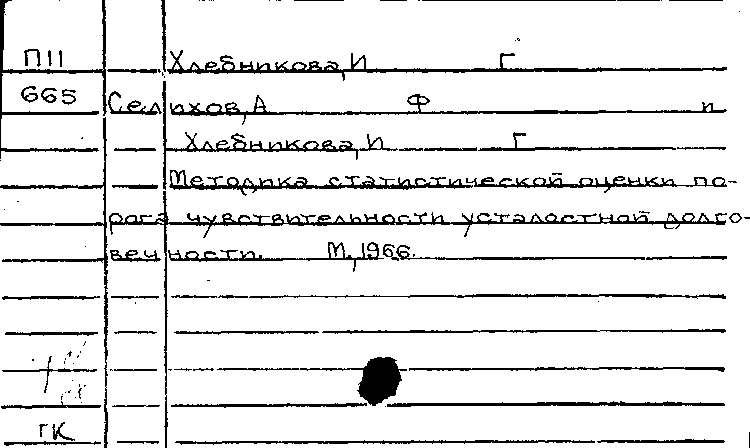 П11 Хлебникова, И Г
665 Селихов, А Ф п
Хлебникова, И Г
Методика статистической оценки по-
рога чувствительности усталостной долго-
вечности. М., 1966.
ГК